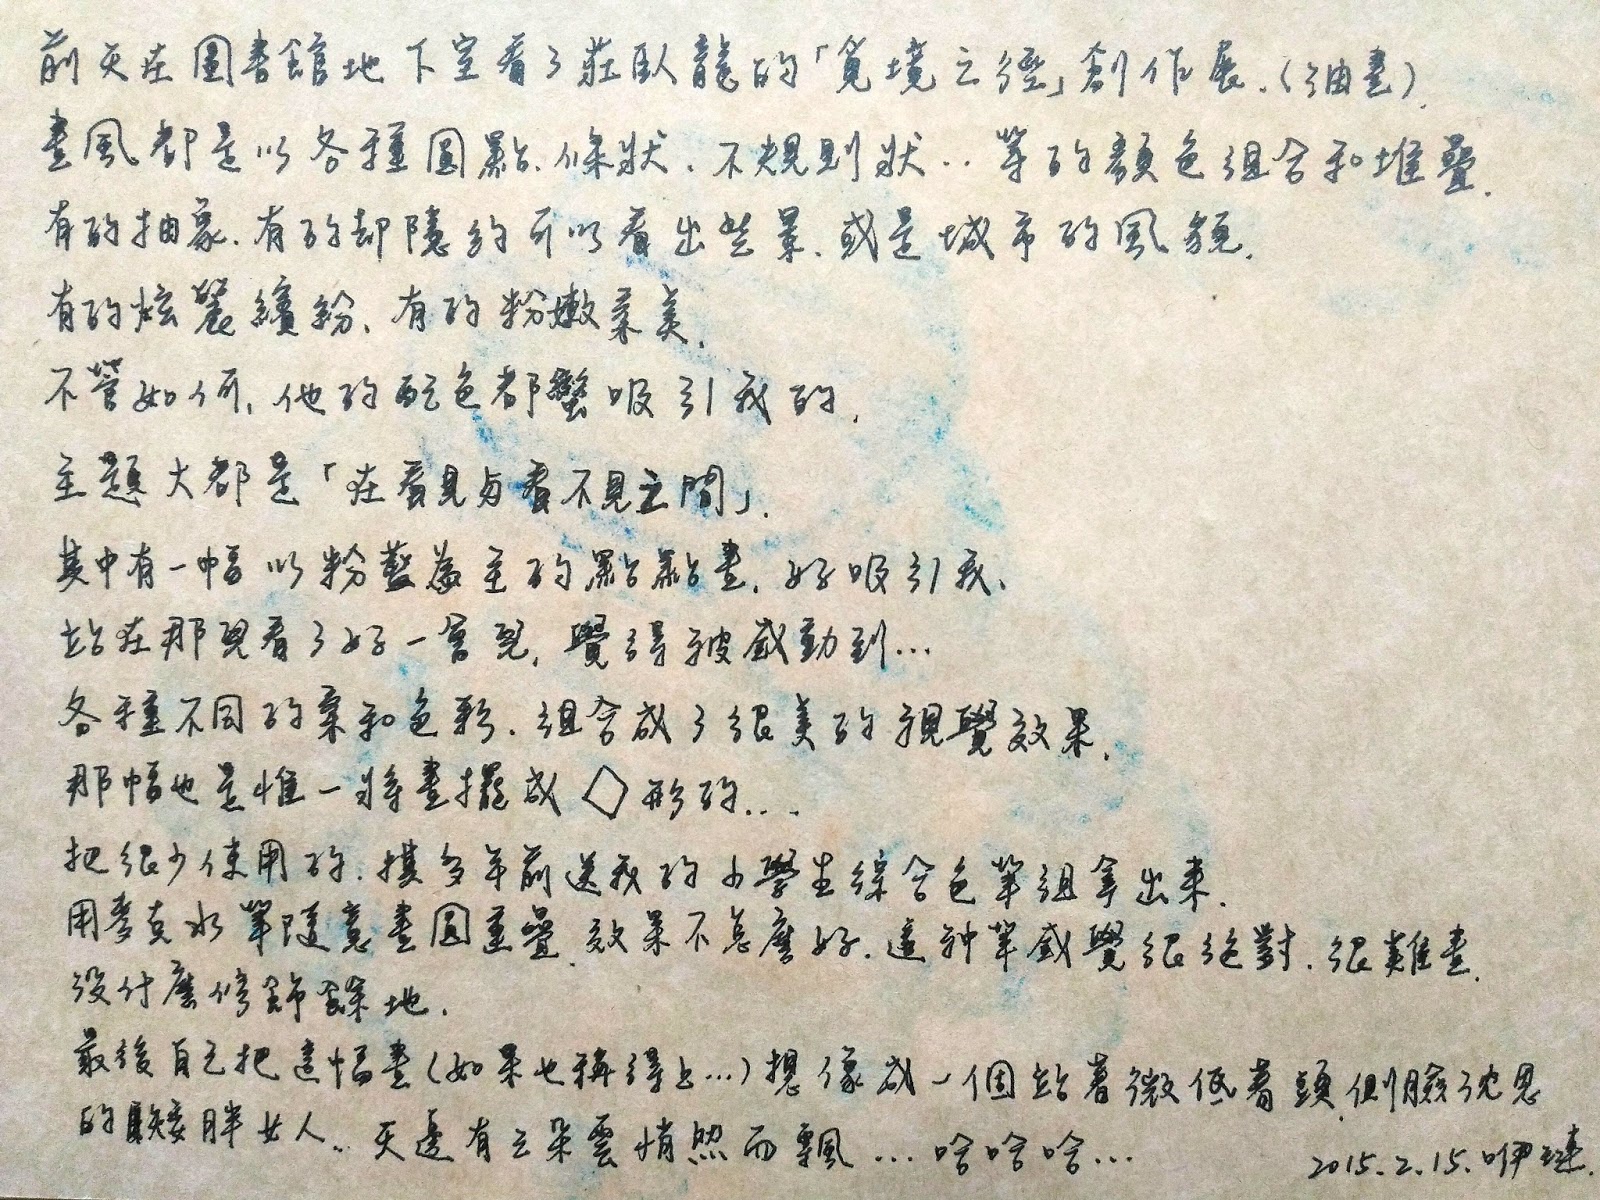 前天在圖書館地下室看了莊臥龍的「覓境之徑」創作展.(油畫).
畫風都是以各種圓點、條狀、不規則狀…等的顏色組合和堆疊.
有的抽象.有的卻隱約可以看出些景.或是城市的風貌.
有的炫麗繽紛、有的粉嫩柔美.
不管如何,他的配色都蠻吸引我的.
主題大都是「在看見与看不見之間」.
其中有一幅以粉藍為主的點點畫.好吸引我、
站在那兒看了好一會兒,覺得被感動到…
各種不同的柔和色彩.組合成了很美的視覺效果.
那幅也是惟一將畫擺成◇形的...
把很少使用的.撲多年前送我的小學生綜合色筆組拿出來.
用麥克水筆隨意畫圓重疊.效果不怎麼好.這种筆感覺很絕對.很難畫.
沒什麼修飾餘地.
最後自己把這幅畫(如果也稱得上…)想像成一個站著微低著頭.側臉沈思
的矮胖女人..天邊有三朵雲悄然而飄…哈哈哈…
2015.2.15.咿璉.